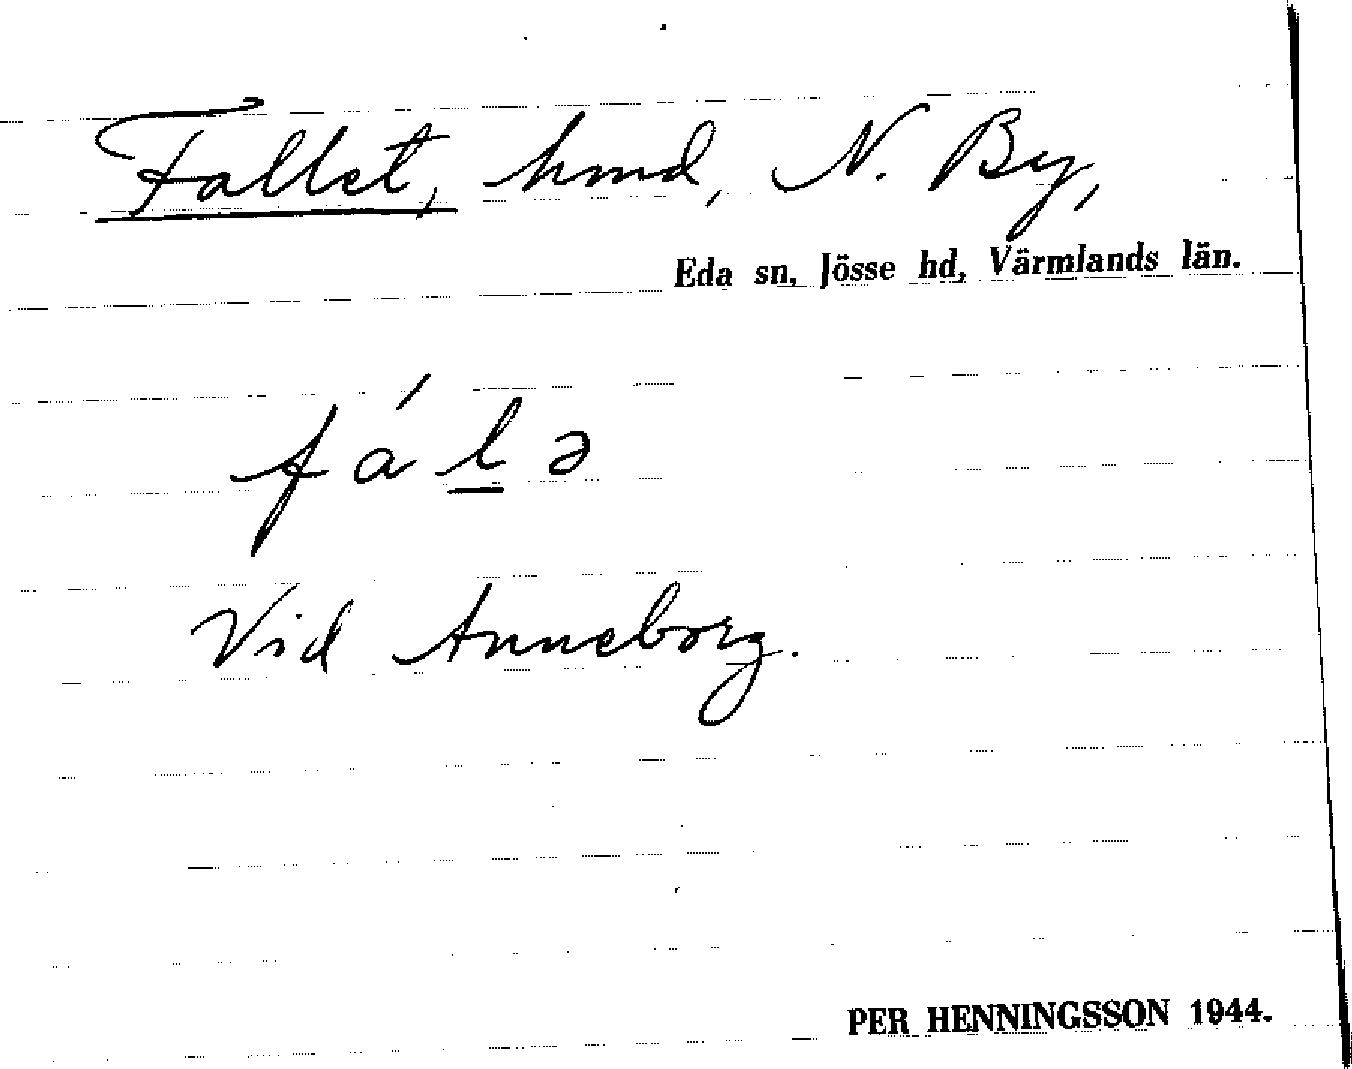 Fallet, hmd, N. By,
Eda sn, Jösse hd, Värmlands län.
fá l̲ ə
Vid Anneborg.
PER HENNINGSSON 1944.